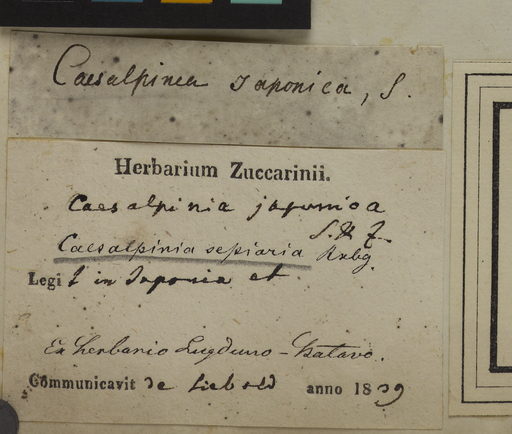 Caesalpinea japonica, S.
Herbarium Zuccarinii.
Caesalpinia japonica
S. & Z.
Caesalpinia sepiaria Rxbg.
Legit in Japonia et
Ex herbario Lugduno-Batavo.
Communicavit de Siebold anno 1839